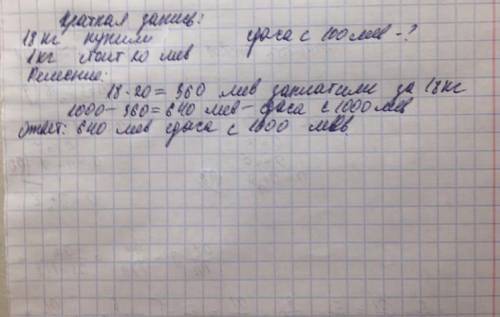 Краткая запись:
18 кг купили сдача с 100 лев - ?
1 кг стоит 20 лев
Решение:
18 · 20 = 360 лев заплатили за 18 кг
1000 - 360 = 640 лев - сдача с 1000 лев
Ответ: 640 лев сдача с 1000 лев.